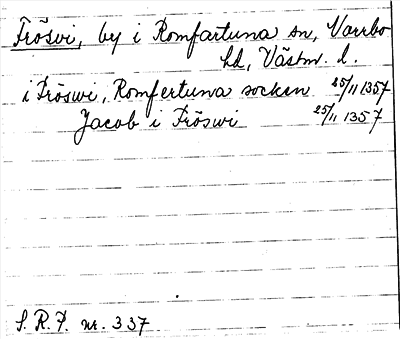 Frösvi, by i Romfartuna sn, Varrbo
hd, Västm. l.
i Fröswi, Romfertuna socken 25/11 1357
Jacob i Fröswi 25/11 1357
S. R. P. nr. 337